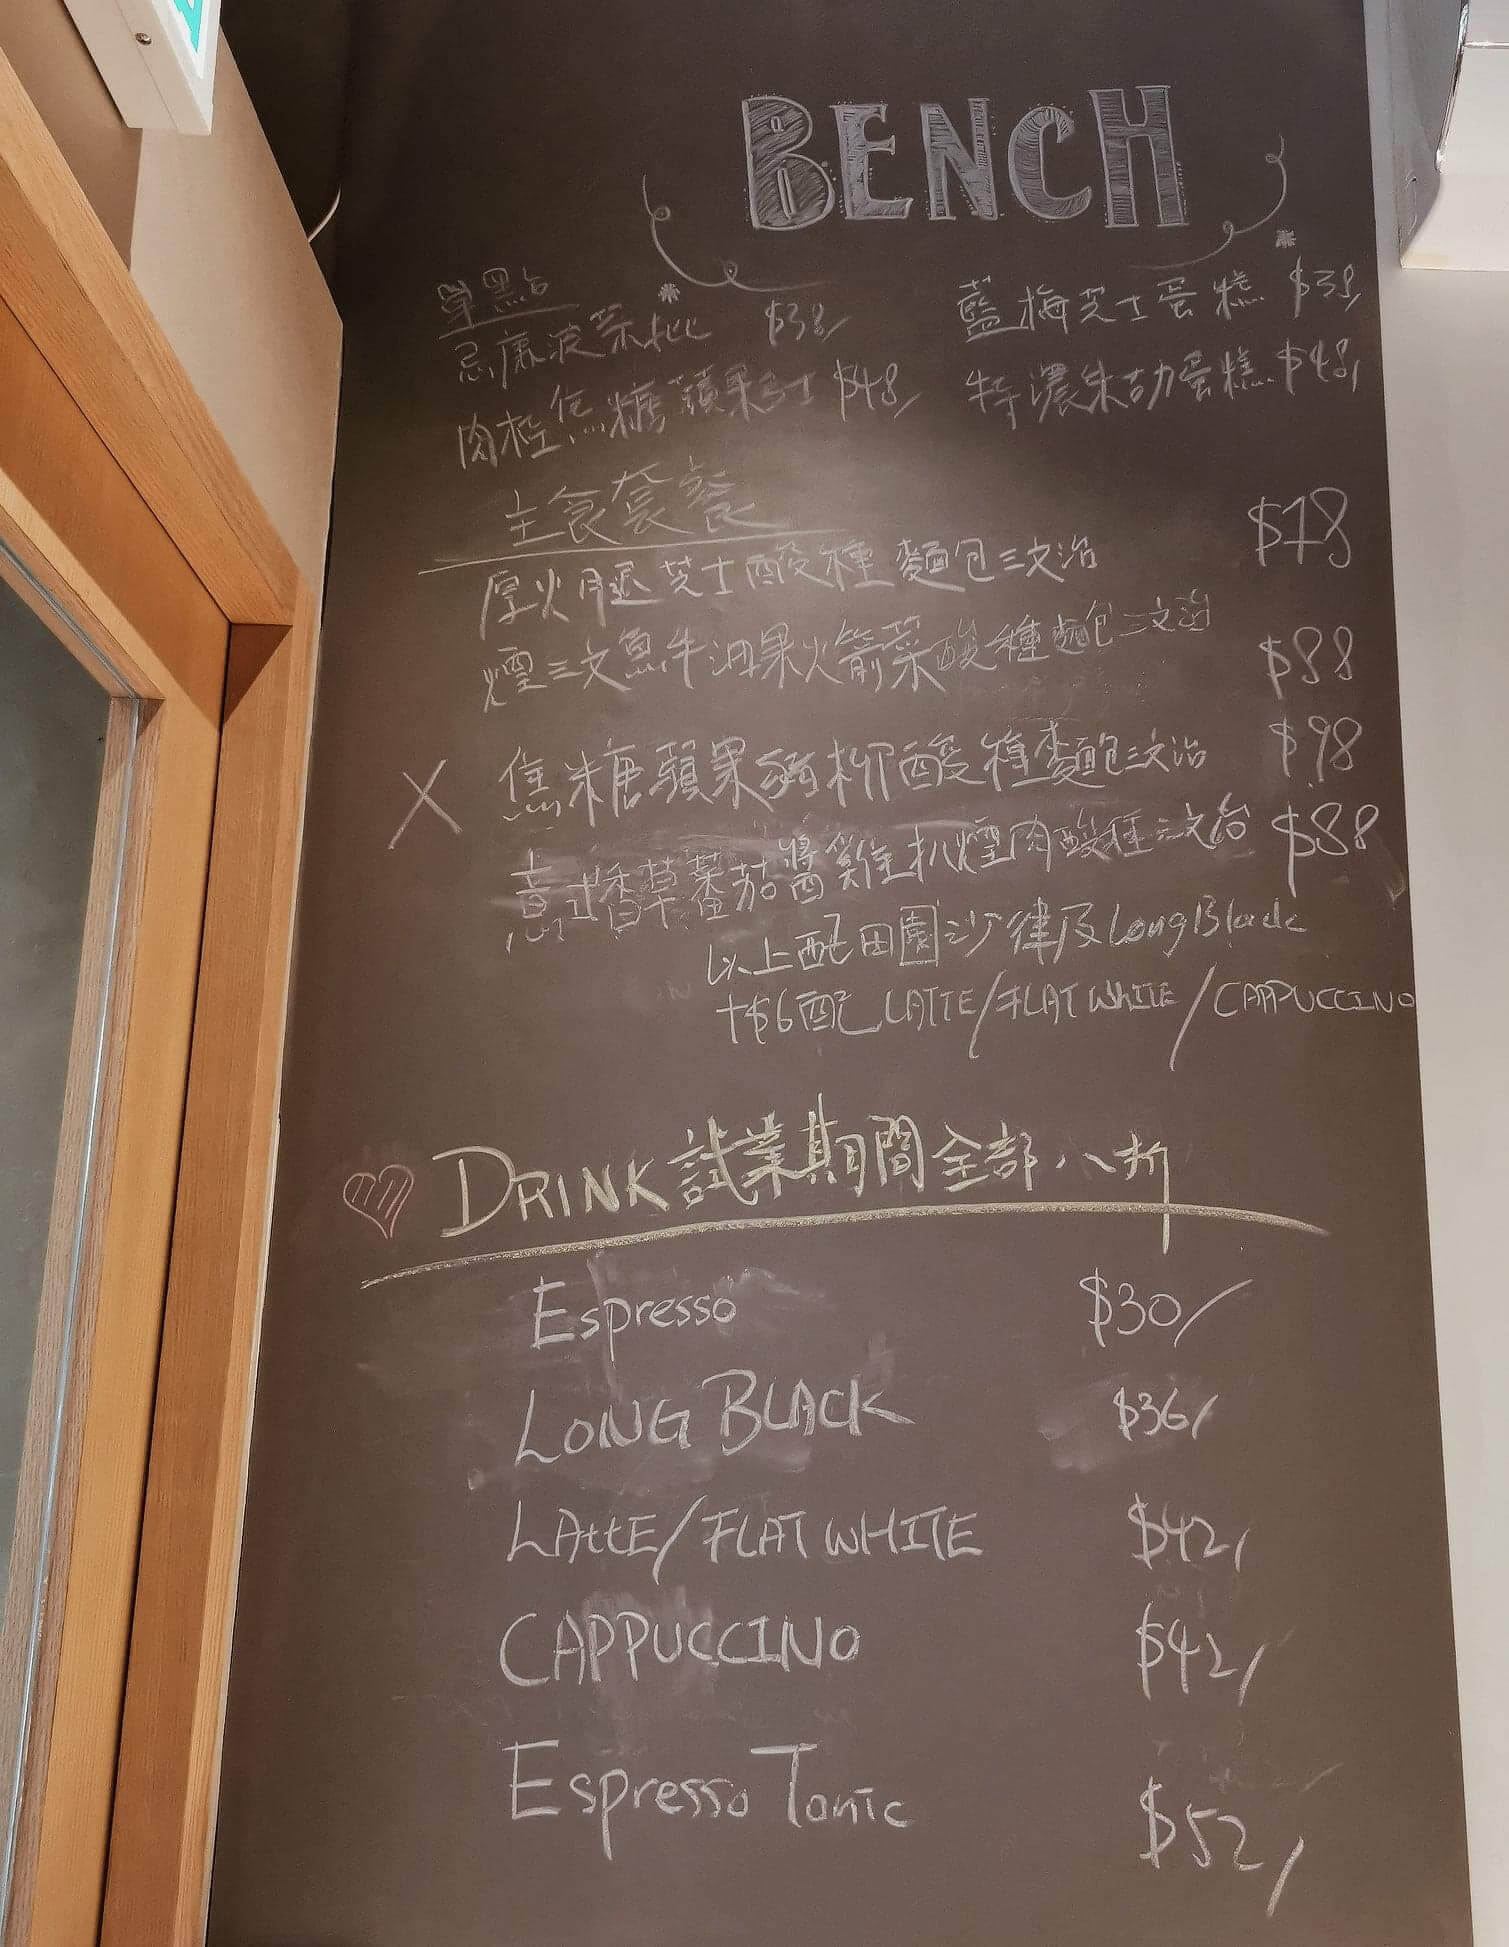 BENCH
單點
忌廉波菜批 $38/
藍梅芝士蛋糕 $38/
肉桂焦糖蘋果多士 $48/
特濃朱古力蛋糕 $48/
主食套餐
厚火腿芝士酸種麵包三文治 $78
煙三文魚牛油果火箭菜酸種麵包三文治 $88
X 焦糖蘋果豬柳酸種麵包三文治 $98
意式香草蕃茄醬雞扒煙肉酸種三文治 $88
以上配田園沙律及Long Black
+$6配 LATTE/FLAT WHITE/CAPPUCCINO
DRINK 試業期間全部八折
Espresso $30/
LONG BLACK $36/
LAttE/FLAT WHITE $42/
CAPPUCCINO $42/
Espresso Tonic $52/